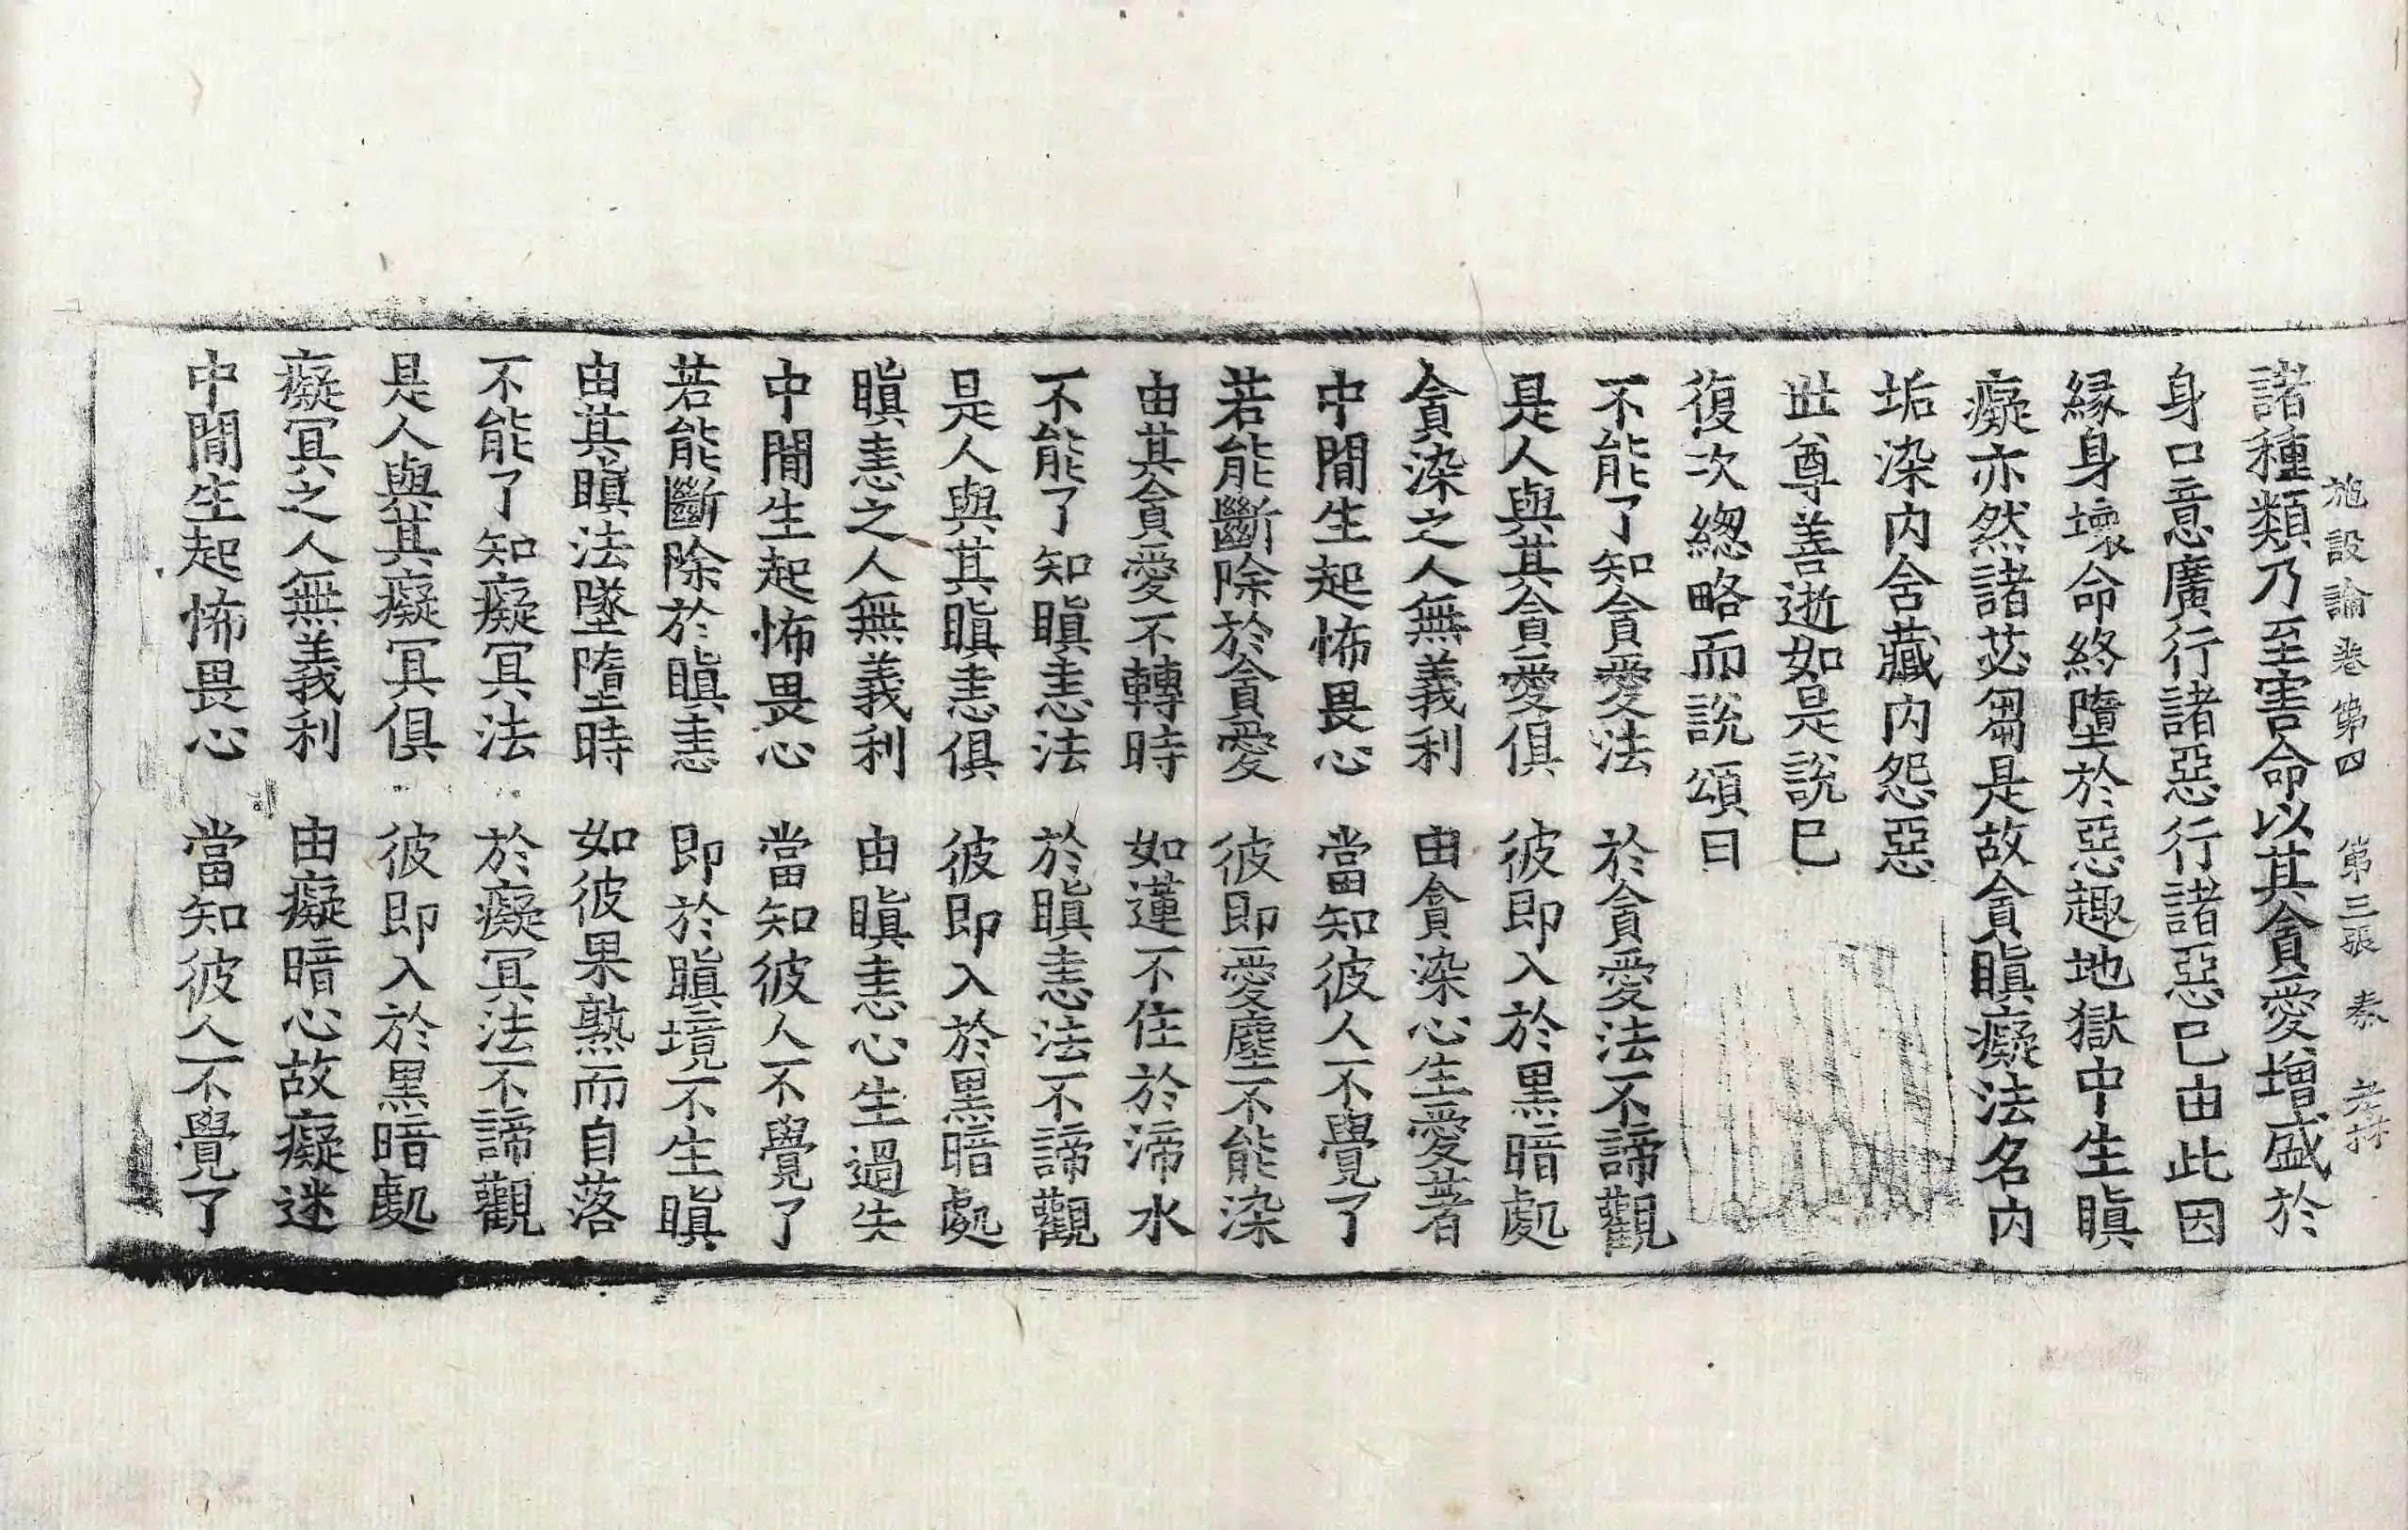 施設論卷第四 第三張 秦
諸種類乃至害命以其貪愛增盛於
身口意廣行諸惡行諸惡已由此因
縁身壞命終墮於惡趣地獄中生瞋
癡亦然諸苾芻是故貪瞋癡法名内
垢染内舍藏内怨惡
世尊善逝如是說已
復次緫略而說頌曰
不能了知貪愛法 於貪愛法不諦觀
是人與其貪愛俱 彼即入於黑暗處
貪染之人無義利 由貪染心生愛著
中間生起怖畏心 當知彼人不覺了
若能斷除於貪愛 彼即愛塵不能染
由其貪愛不轉時 如蓮不住於渧水
不能了知瞋恚法 於瞋恚法不諦觀
是人與其瞋恚俱 彼即入於黑暗處
瞋恚之人無義利 由瞋恚心生過失
中間生起怖畏心 當知彼人不覺了
若能斷除於瞋恚 即於瞋境不生瞋
由其瞋法墜墮時 如彼果熟而自落
不能了知癡冥法 於癡冥法不諦觀
是人與其癡冥俱 彼即入於黑暗處
癡冥之人無義利 由癡暗心故癡迷
中間生起怖畏心 當知彼人不覺了